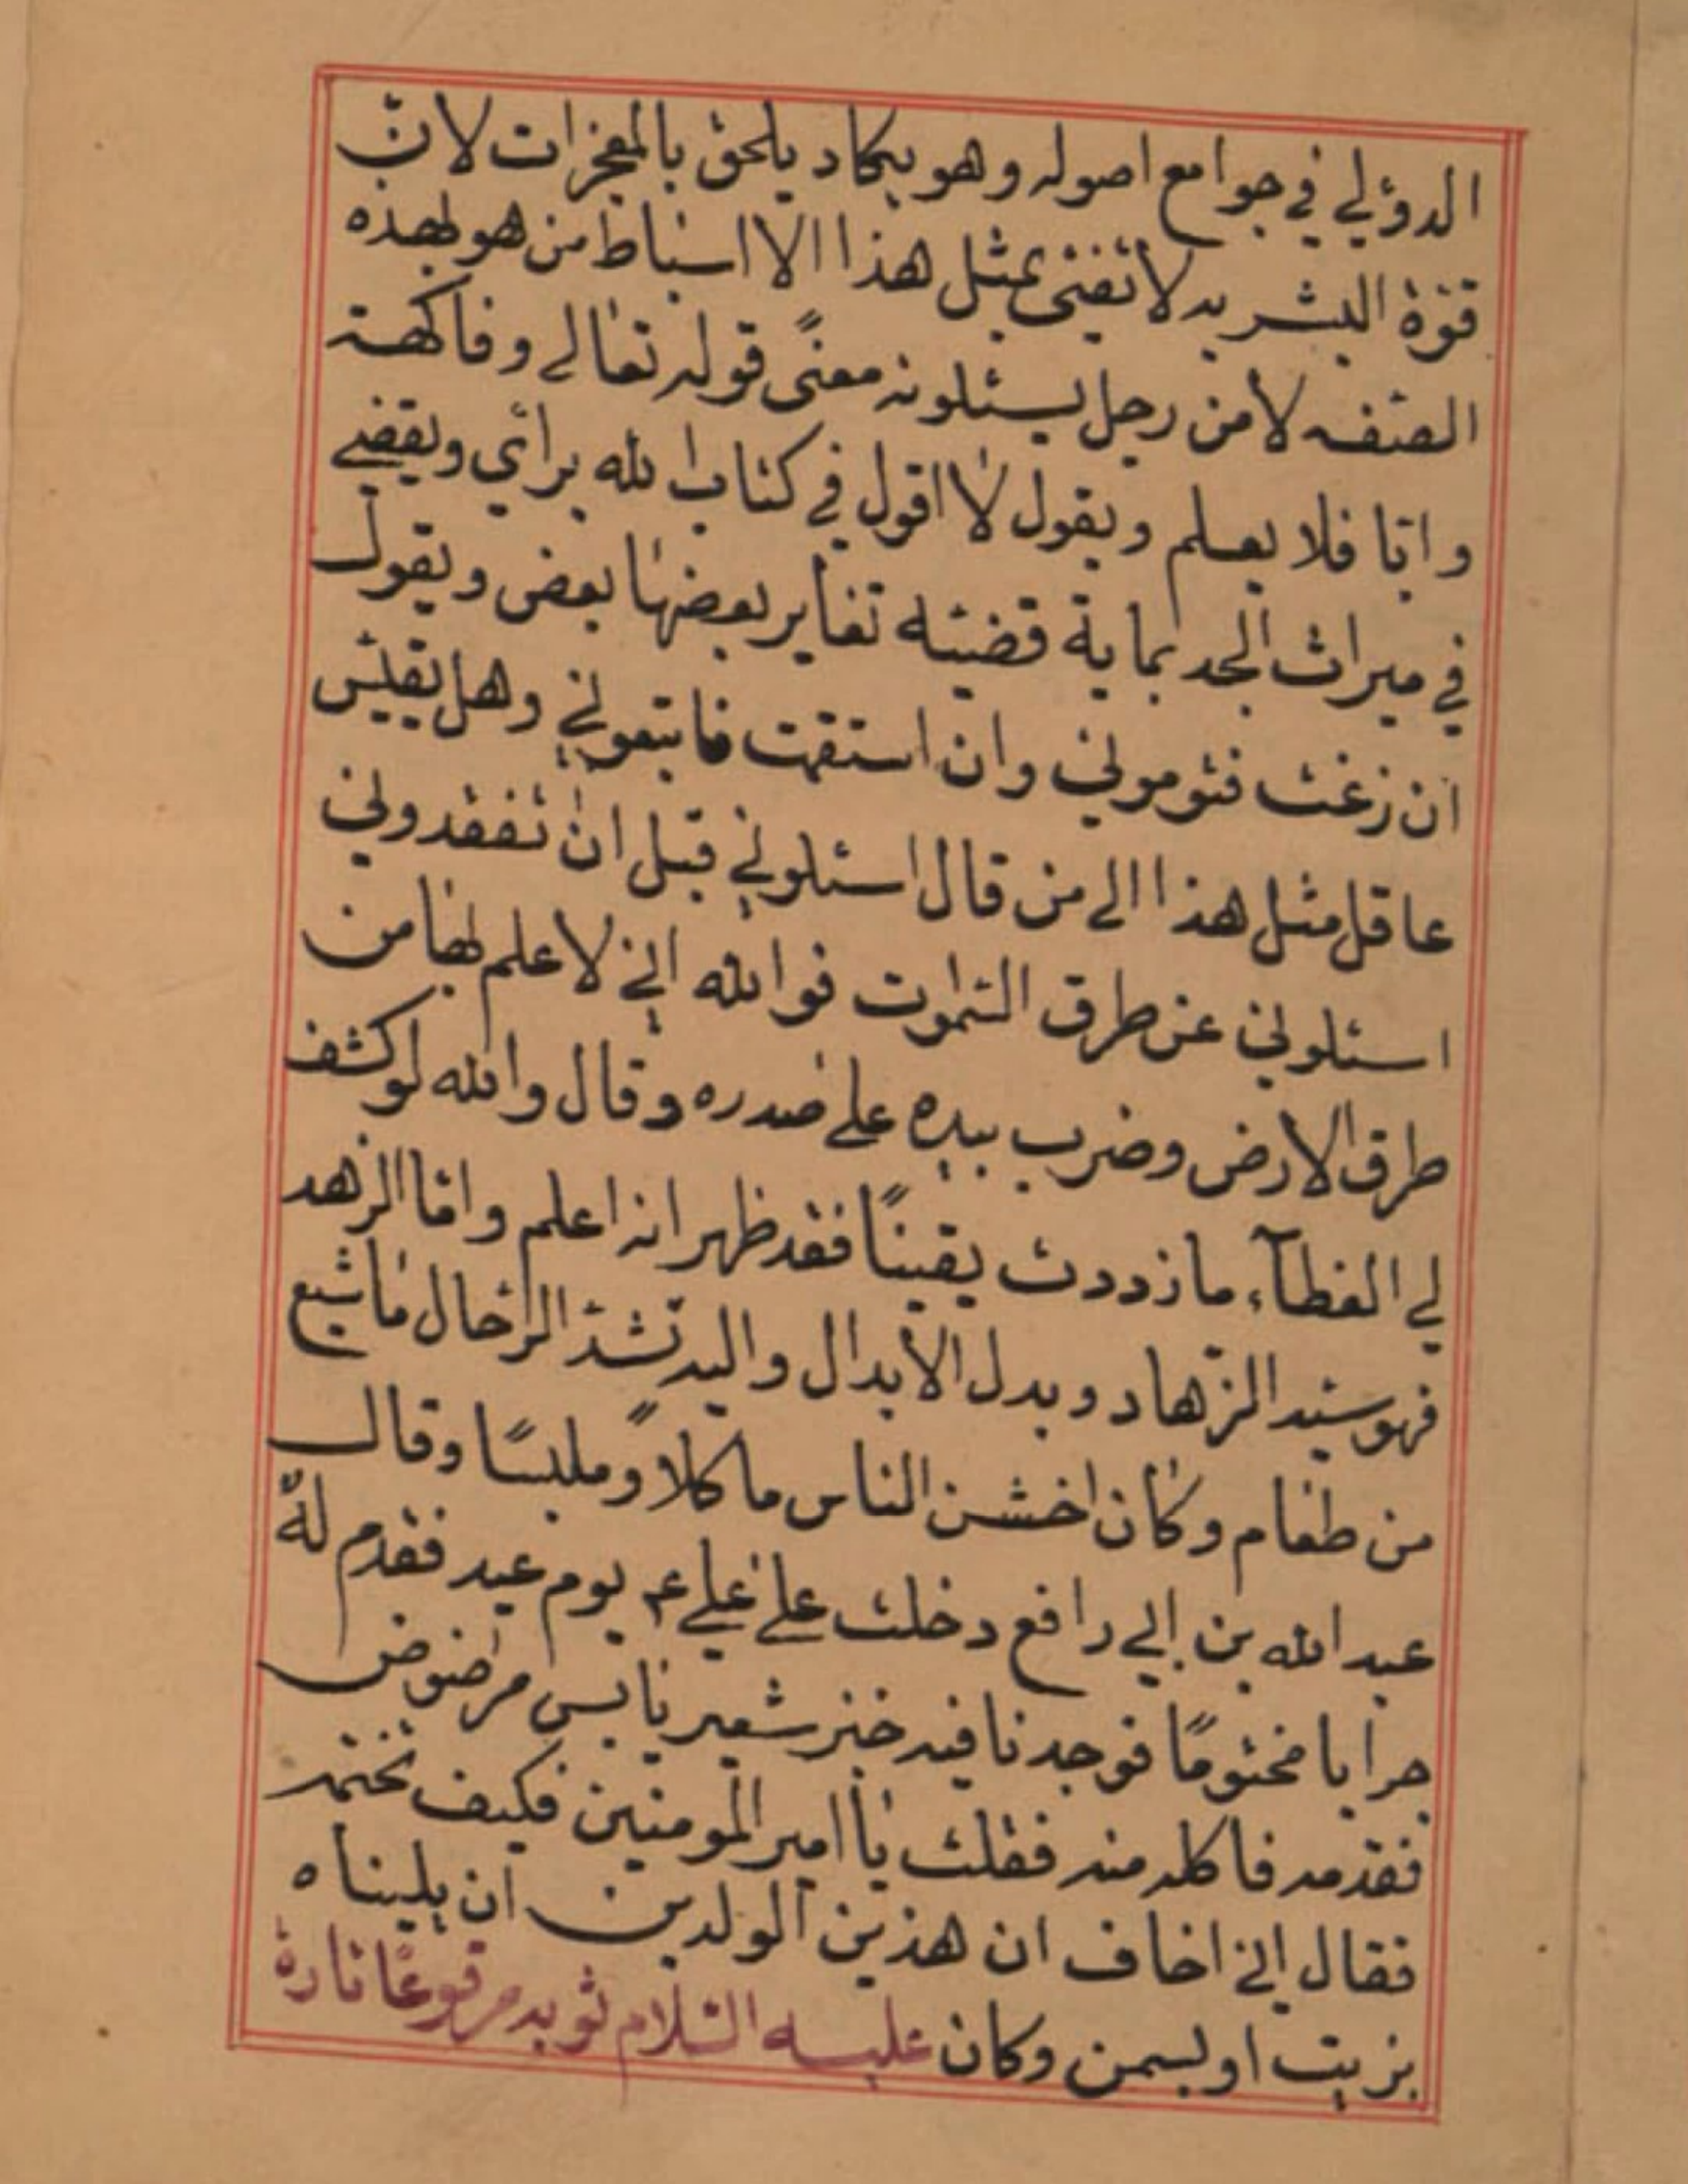 الدؤلي في جوامع اصوله وهو يكاد يلحق بالمعجزات لانّ
قوّة البشريه لا تفنى بمثل هذا الا اسنباط من هو لهذه
الصفه لا من رجل يسئلونه معنًى قوله تعالى وفاكهة
وابّا فلا يعلم ويقول لا اقول في كتاب الله برأي ويقضي
في ميراث الجد بماية قضيّه تغاير بعضها بعض ويقول
ان زغت فقوموني وان استقمت فاتبعوني وهل يقيس
عاقل مثل هذا الى من قال اسئلوني قبل ان تفقدوني
اسئلوني عن طرق السّموات فوالله اني لاعلم لها من
طرق الارض وضرب بيده على صدره وقال والله لو كشف
لي الغطآء ما زددت يقينًا فقد ظهر انه اعلم وامّا الزهد
فهو سيّد الزّهاد وبدل الابدال واليه تشدّ الرّحال ما شبع
من طعام وكان اخشن الناس ماكلاً وملبسًا وقال
عبد الله بن ابي رافع دخلت على علي ع يوم عيد فقدم له
جرابا مختومًا فوجدنا فيه خبز شعير يابس مرضوض
فقدمه فاكله منه فقلت يا امير المومنين فكيف تختمه
فقال اني اخاف ان هذين الولدين ان يليناه
بزيت او بسمن وكان عليه السّلام ثوبه مرقوعًا تارة